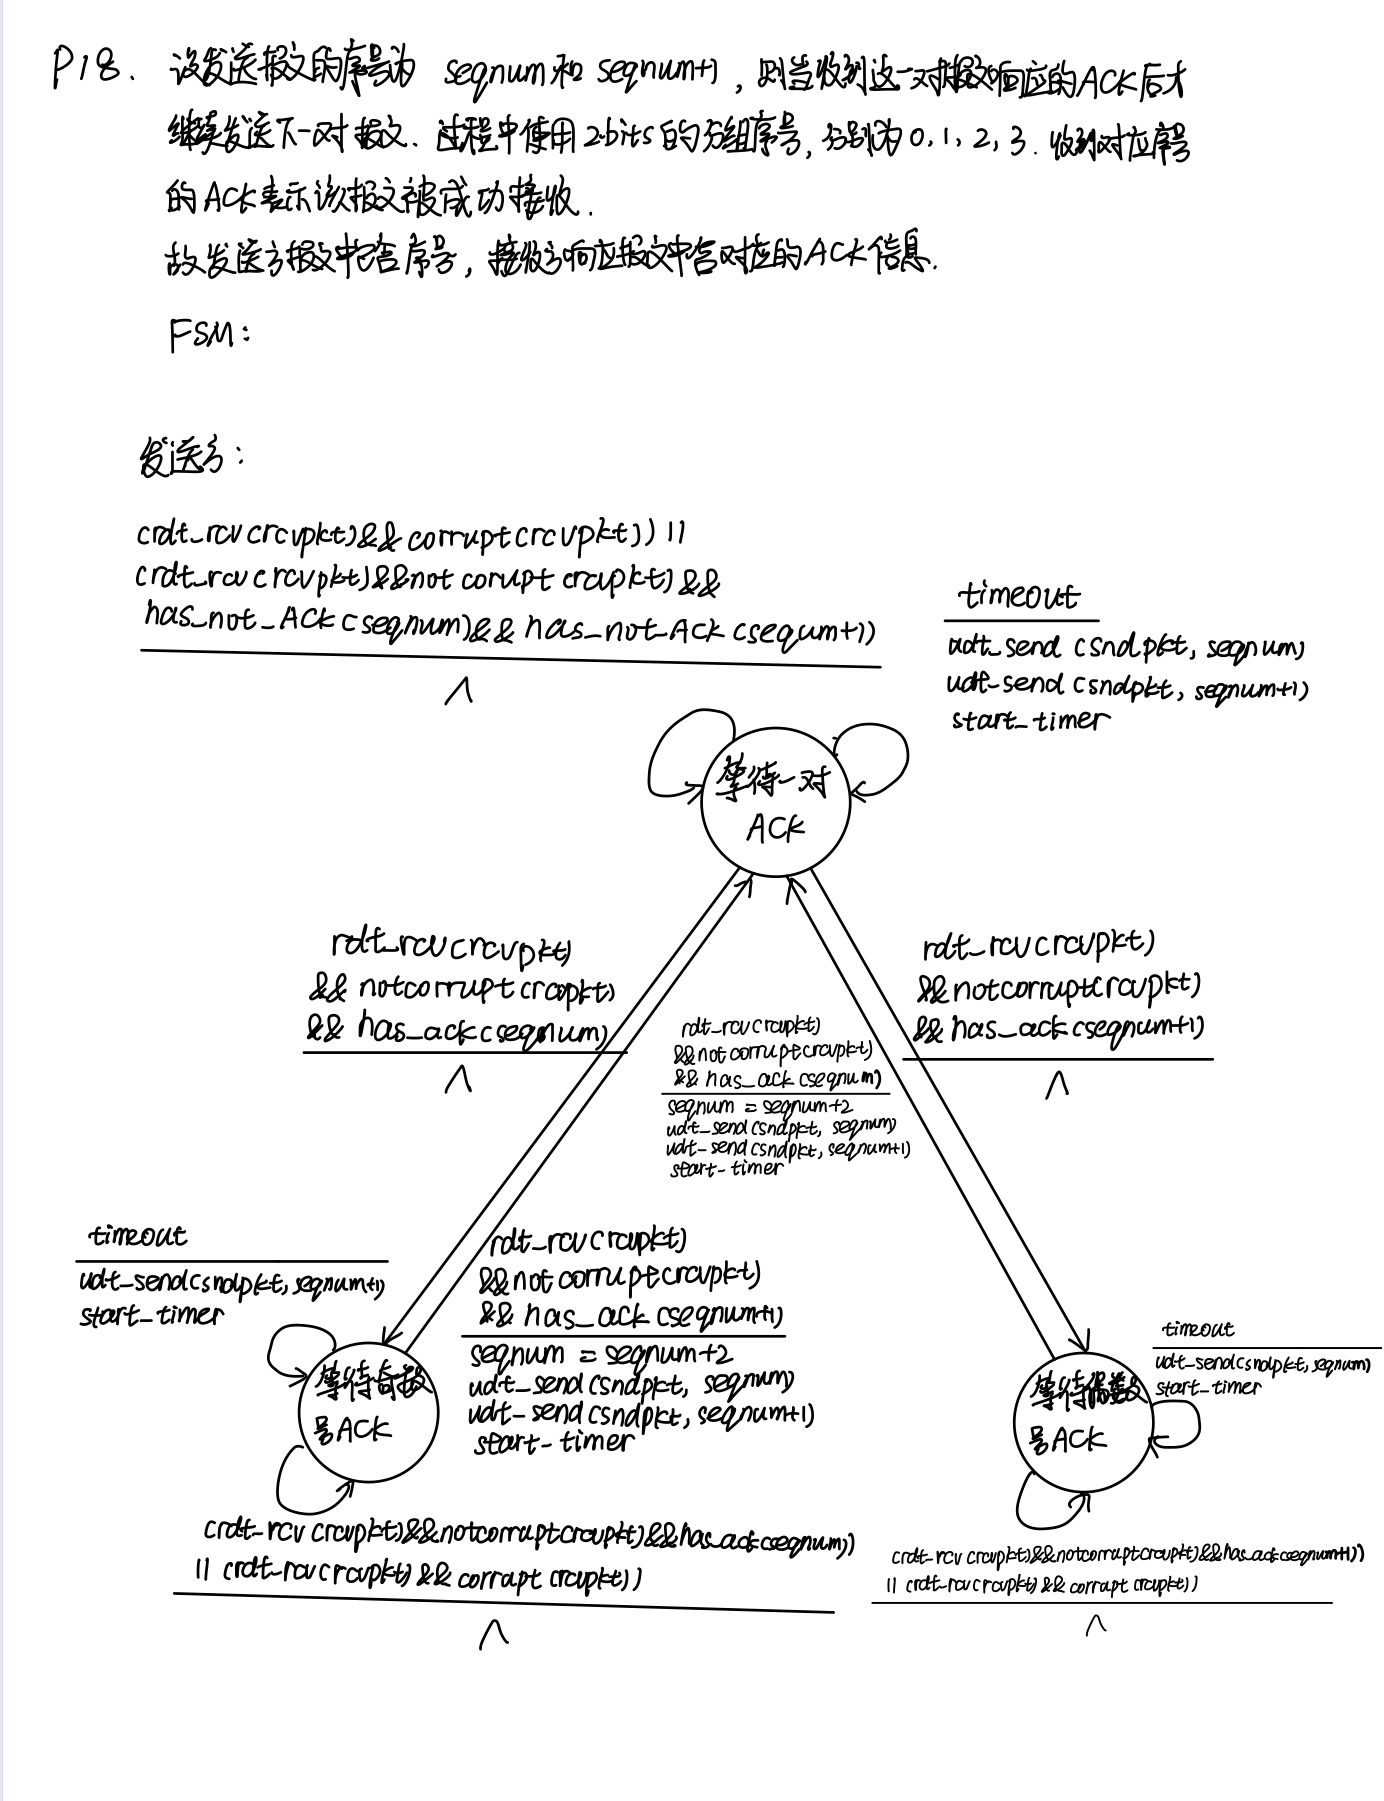 P18. 设发送报文的序号为 seqnum和 seqnum+1, 则当收到这一对报文响应的ACK后才
继续发送下一对报文. 过程中使用2bits的分组序号, 分别为0, 1, 2, 3. 收到对应序号
的ACK表示该报文被成功接收.
故发送方报文中包含序号, 接收方响应报文中含对应的ACK信息.
FSM:
发送方:
(rdt_rcv(rcvpkt)&& corrupt(rcvpkt)) ||
(rdt_rcv(rcvpkt)&&not corupt(rcvpkt)&&
has_not_ACK(seqnum)&& has_not_ACK(sequm+1)
Λ
timeout
udt_send(sndpkt, seqnum)
udt_send(sndpkt, seqnum+1)
start_timer
等待一对
ACK
rdt_rcv(rcvpkt)
&& notcorrupt(rcvpkt)
&& has_ack(seqnum)
Λ
rdt_rcv(rcvpkt)
&&notcorrupt(rcvpkt)
&& has_ack(seqnum)
seqnum = seqnum+2
udt_send(sndpkt, seqnum)
udt_send(sndpkt, seqnum+1)
start_timer
rdt_rcv(rcvpkt)
&&notcorrupt(rcvpkt)
&& has_ack(seqnum+1)
Λ
timeout
udt_send(sndpkt, seqnum+1)
start_timer
等待奇数
号ACK
rdt_rcv(rcvpkt)
&&notcorrupt(rcvpkt)
&& has_ack(seqnum+1)
seqnum = seqnum+2
udt_send(sndpkt, seqnum)
udt_send(sndpkt, seqnum+1)
start_timer
timeout
udt_send(sndpkt, seqnum)
start_timer
等待偶数
号ACK
(rdt_rcv(rcvpkt)&&notcorrupt(rcvpkt)&&has_ack(seqnum))
|| (rdt_rcv(rcvpkt)&& corrupt(rcvpkt))
Λ
(rdt_rcv(rcvpkt)&&notcorrupt(rcvpkt)&&has_ack(seqnum+1))
|| (rdt_rcv(rcvpkt)&& corrupt(rcvpkt))
Λ